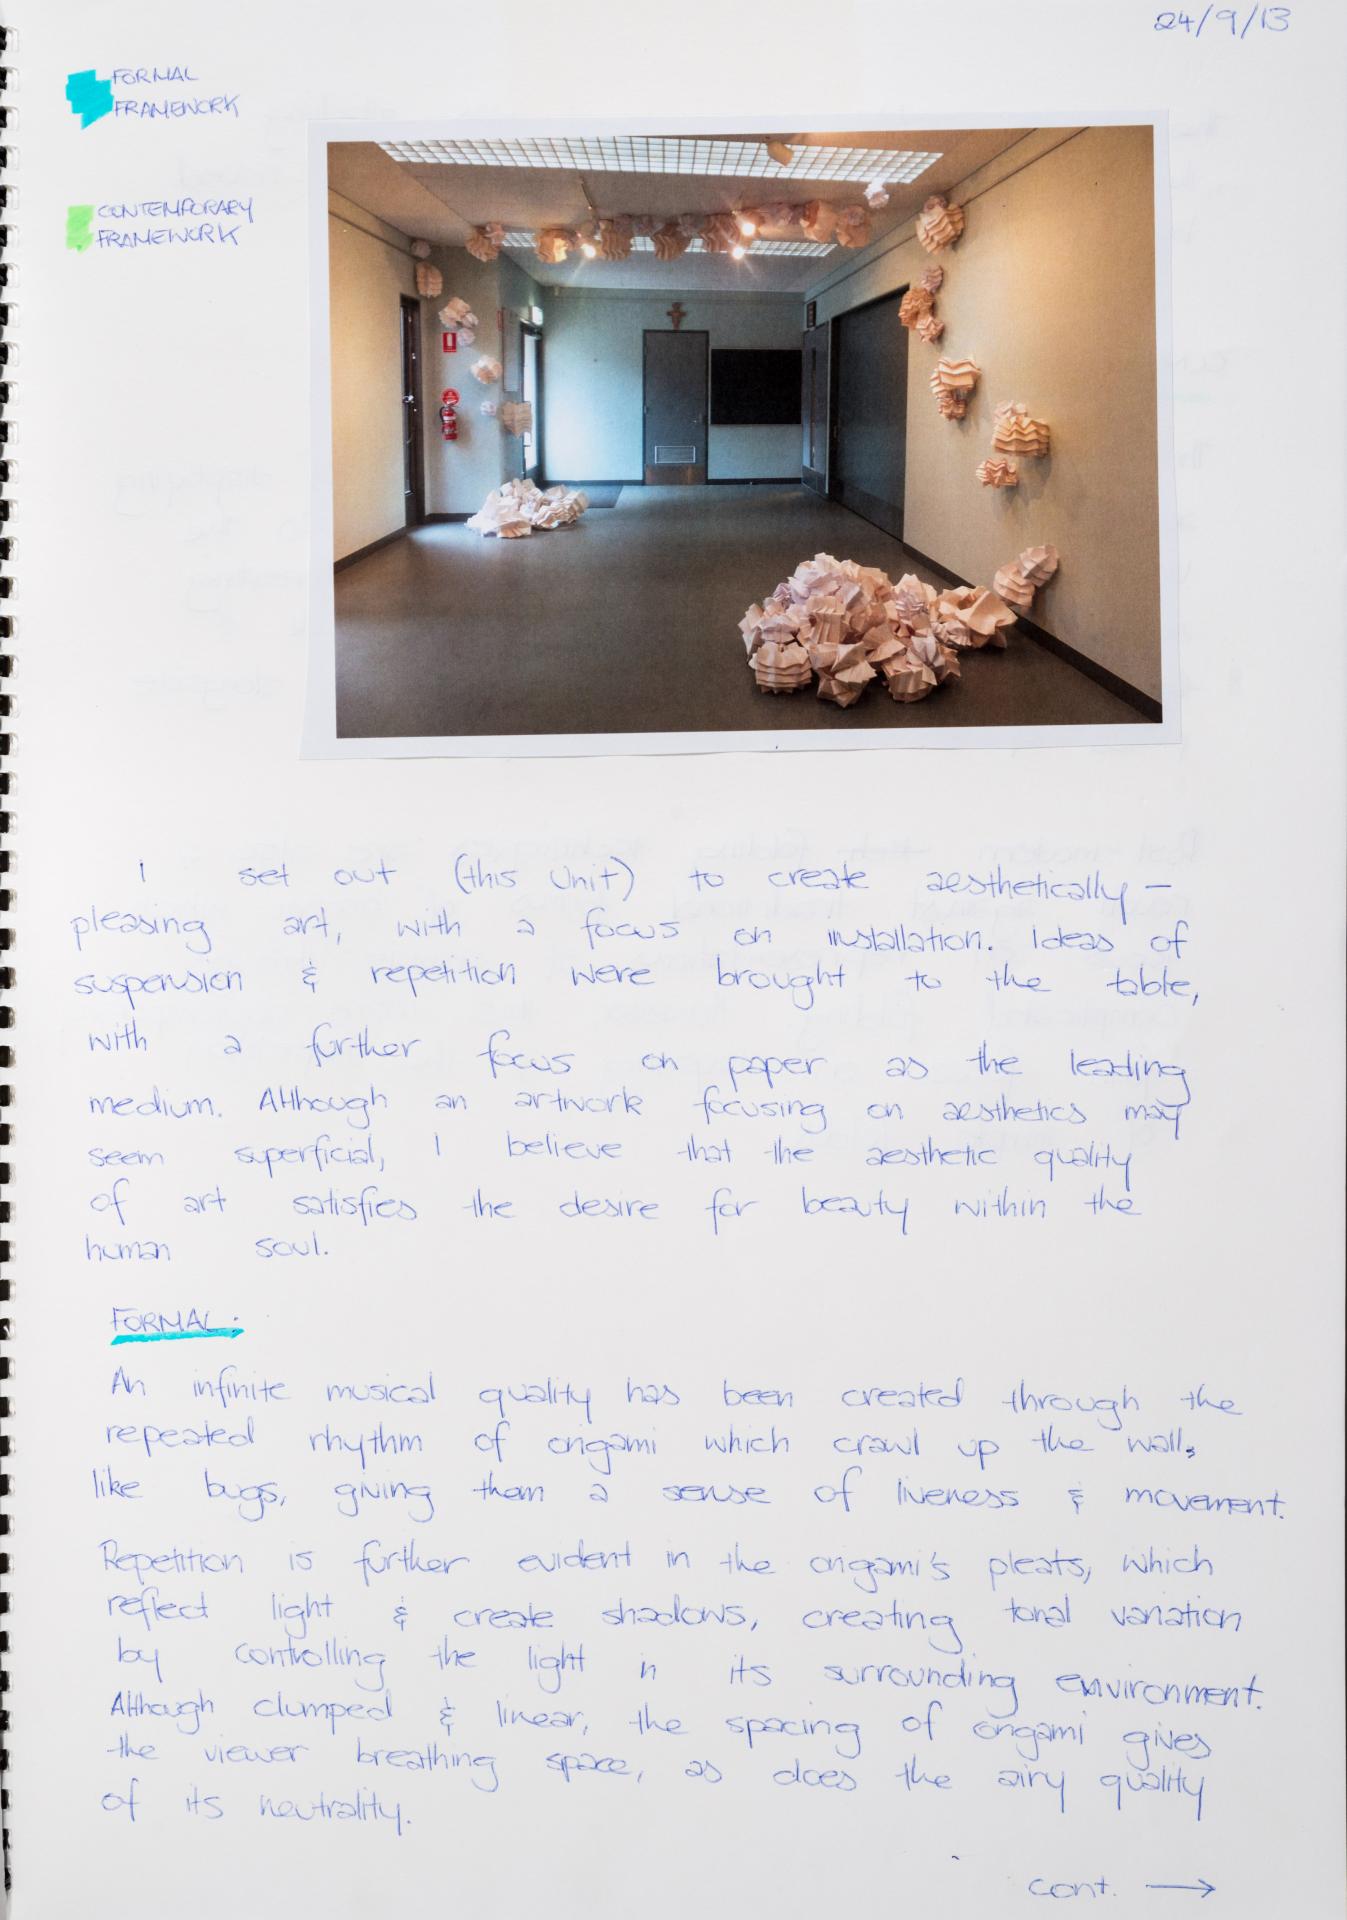 24/9/13
FORMAL
FRAMEWORK
CONTEMPORARY
FRAMEWORK
I set out (this Unit) to create aesthetically-
pleasing art, with a focus on installation. Ideas of
suspension & repetition were brought to the table,
with a further focus on paper as the leading
medium. Although an artwork focusing on aesthetics may
seem superficial, I believe that the aesthetic quality
of art satisfies the desire for beauty within the
human soul.
FORMAL:
An infinite musical quality has been created through the
repeated rhythm of origami which crawl up the walls
like bugs, giving them a sense of liveness & movement.
Repetition is further evident in the origami's pleats, which
reflect light & create shadows, creating tonal variation
by controlling the light in its surrounding environment.
Although clumped & linear, the spacing of origami gives
the viewer breathing space, as does the airy quality
of its neutrality.
cont. →